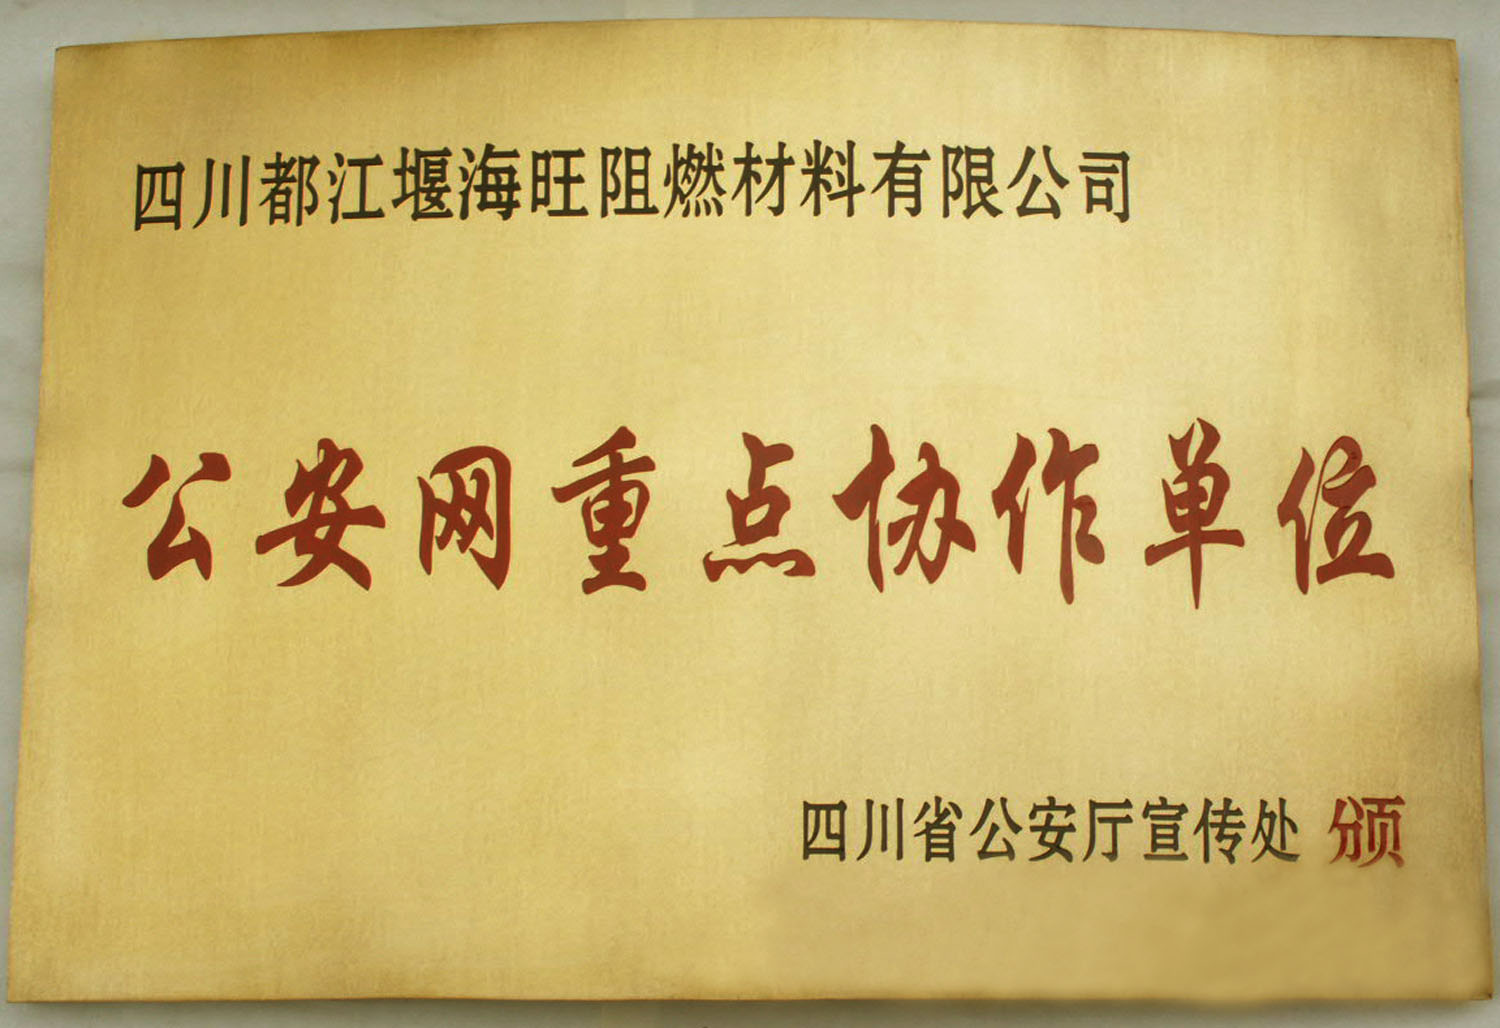 四川都江堰海旺阻燃材料有限公司
公安网重点协作单位
四川省公安厅宣传处 颁